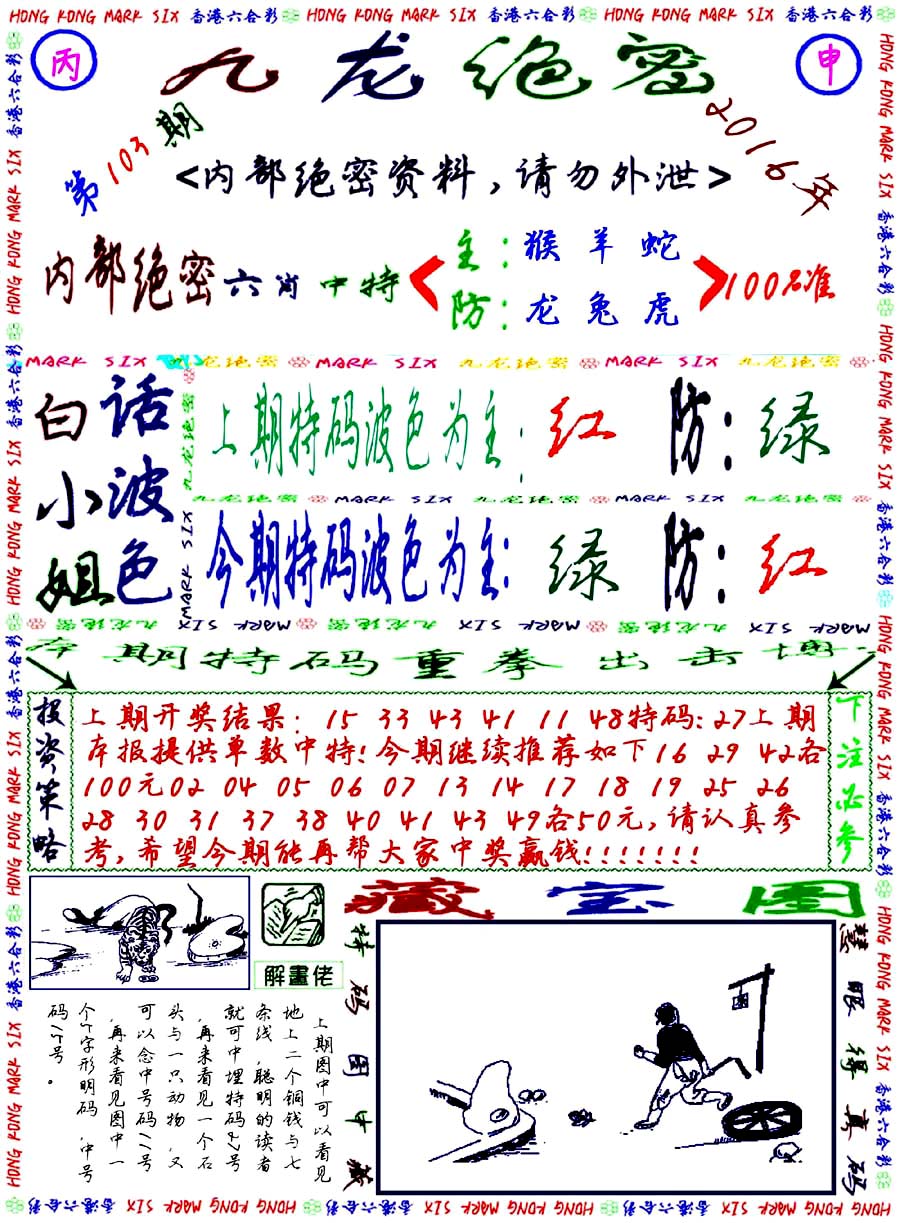 HONG KONG MARK SIX 香港六合彩 HONG KONG MARK SIX 香港六合彩 HONG KONG MARK SIX 香港六合彩
丙
九龙绝密
申
第103期
2016年
<内部绝密资料,请勿外泄>
内部绝密六肖中特
主:猴羊蛇
防:龙兔虎
100%准
MARK SIX 九龙绝密 MARK SIX 九龙绝密 MARK SIX 九龙绝密
白话
小波
姐色
上期特码波色为主:红 防:绿
九龙绝密 MARK SIX 九龙绝密 MARK SIX 九龙绝密
今期特码波色为主:绿 防:红
MARK SIX 九龙绝密 MARK SIX 九龙绝密 MARK SIX 九龙绝密
本期特码重拳出击博
投资策略
上期开奖结果: 15 33 43 41 11 48特码:27上期
本报提供单数中特!今期继续推荐如下16 29 42各
100元02 04 05 06 07 13 14 17 18 19 25 26
28 30 31 37 38 40 41 43 49各50元,请认真参
考,希望今期能再帮大家中奖赢钱!!!!!!!
下注必参
解畫佬
藏宝图
特码图中藏
慧眼得真码
上期图中可以看见
地上二个铜钱与七
条线,聪明的读者
就可中埋特码27号
,再来看见一个石
头与一只动物,又
可以念中号码11号
,再来看见图中一
个个字形明码,中号
HONG KONG MARK SIX 香港六合彩 HONG KONG MARK SIX 香港六合彩 HONG KONG MARK SIX 香港六合彩